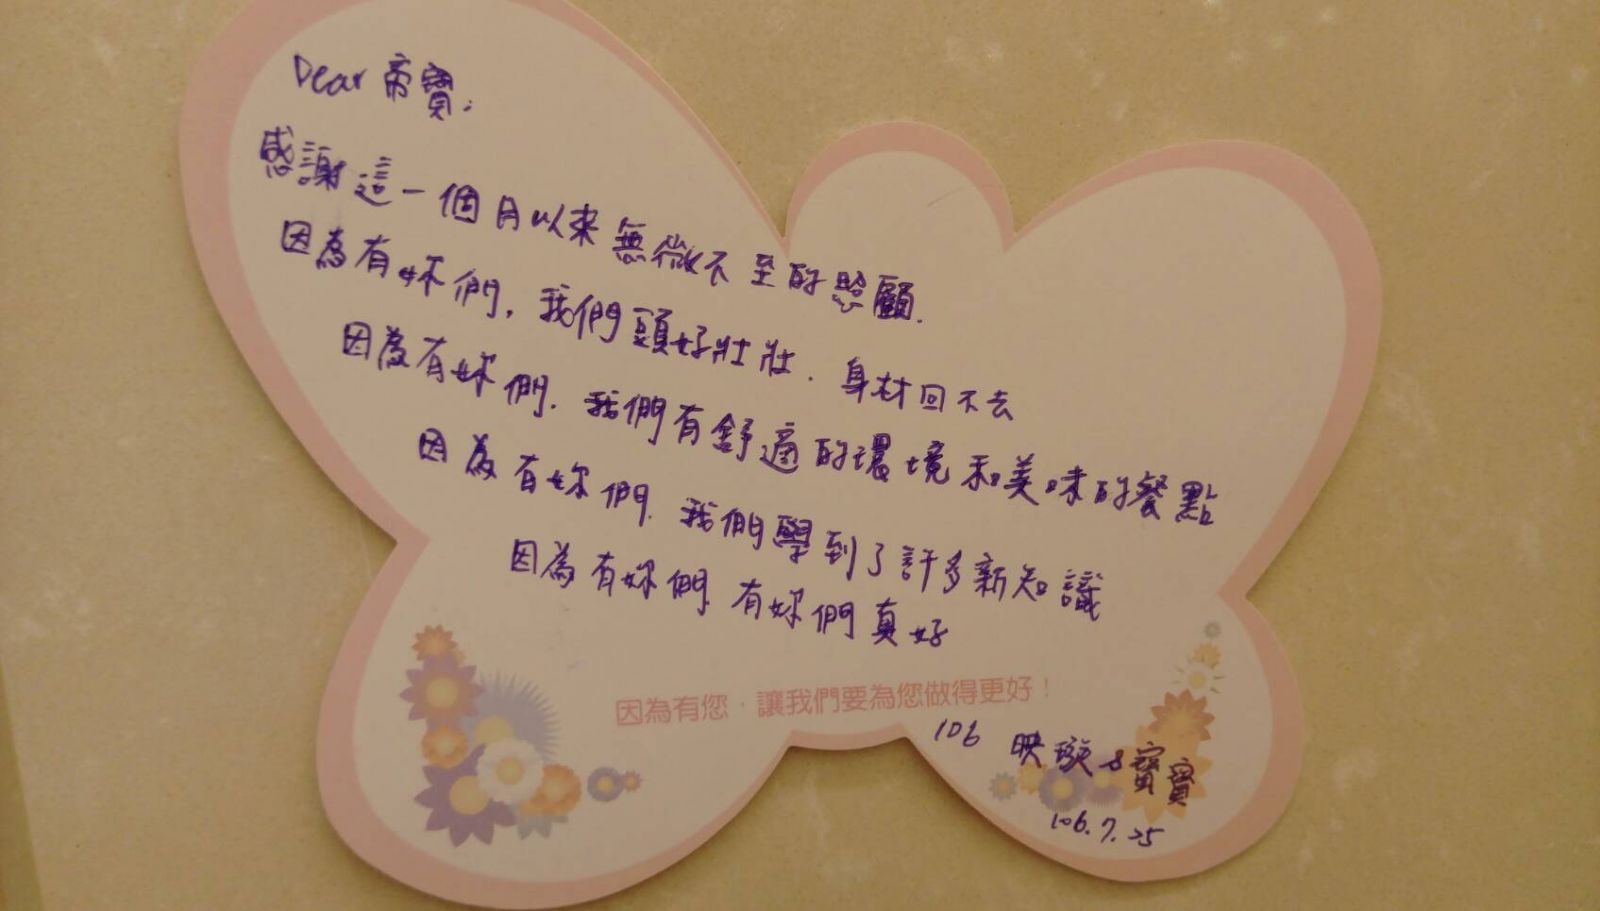 Dear 帝寶:
感謝這一個月以來無微不至的照顧.
因為有妳們, 我們頭好壯壯. 身材回不去
因為有妳們. 我們有舒適的環境和美味的餐點
因為有妳們. 我們學到了許多新知識
因為有妳們. 有妳們真好
因為有您，讓我們要為您做得更好！
106 映璇&寶寶
106.7.25